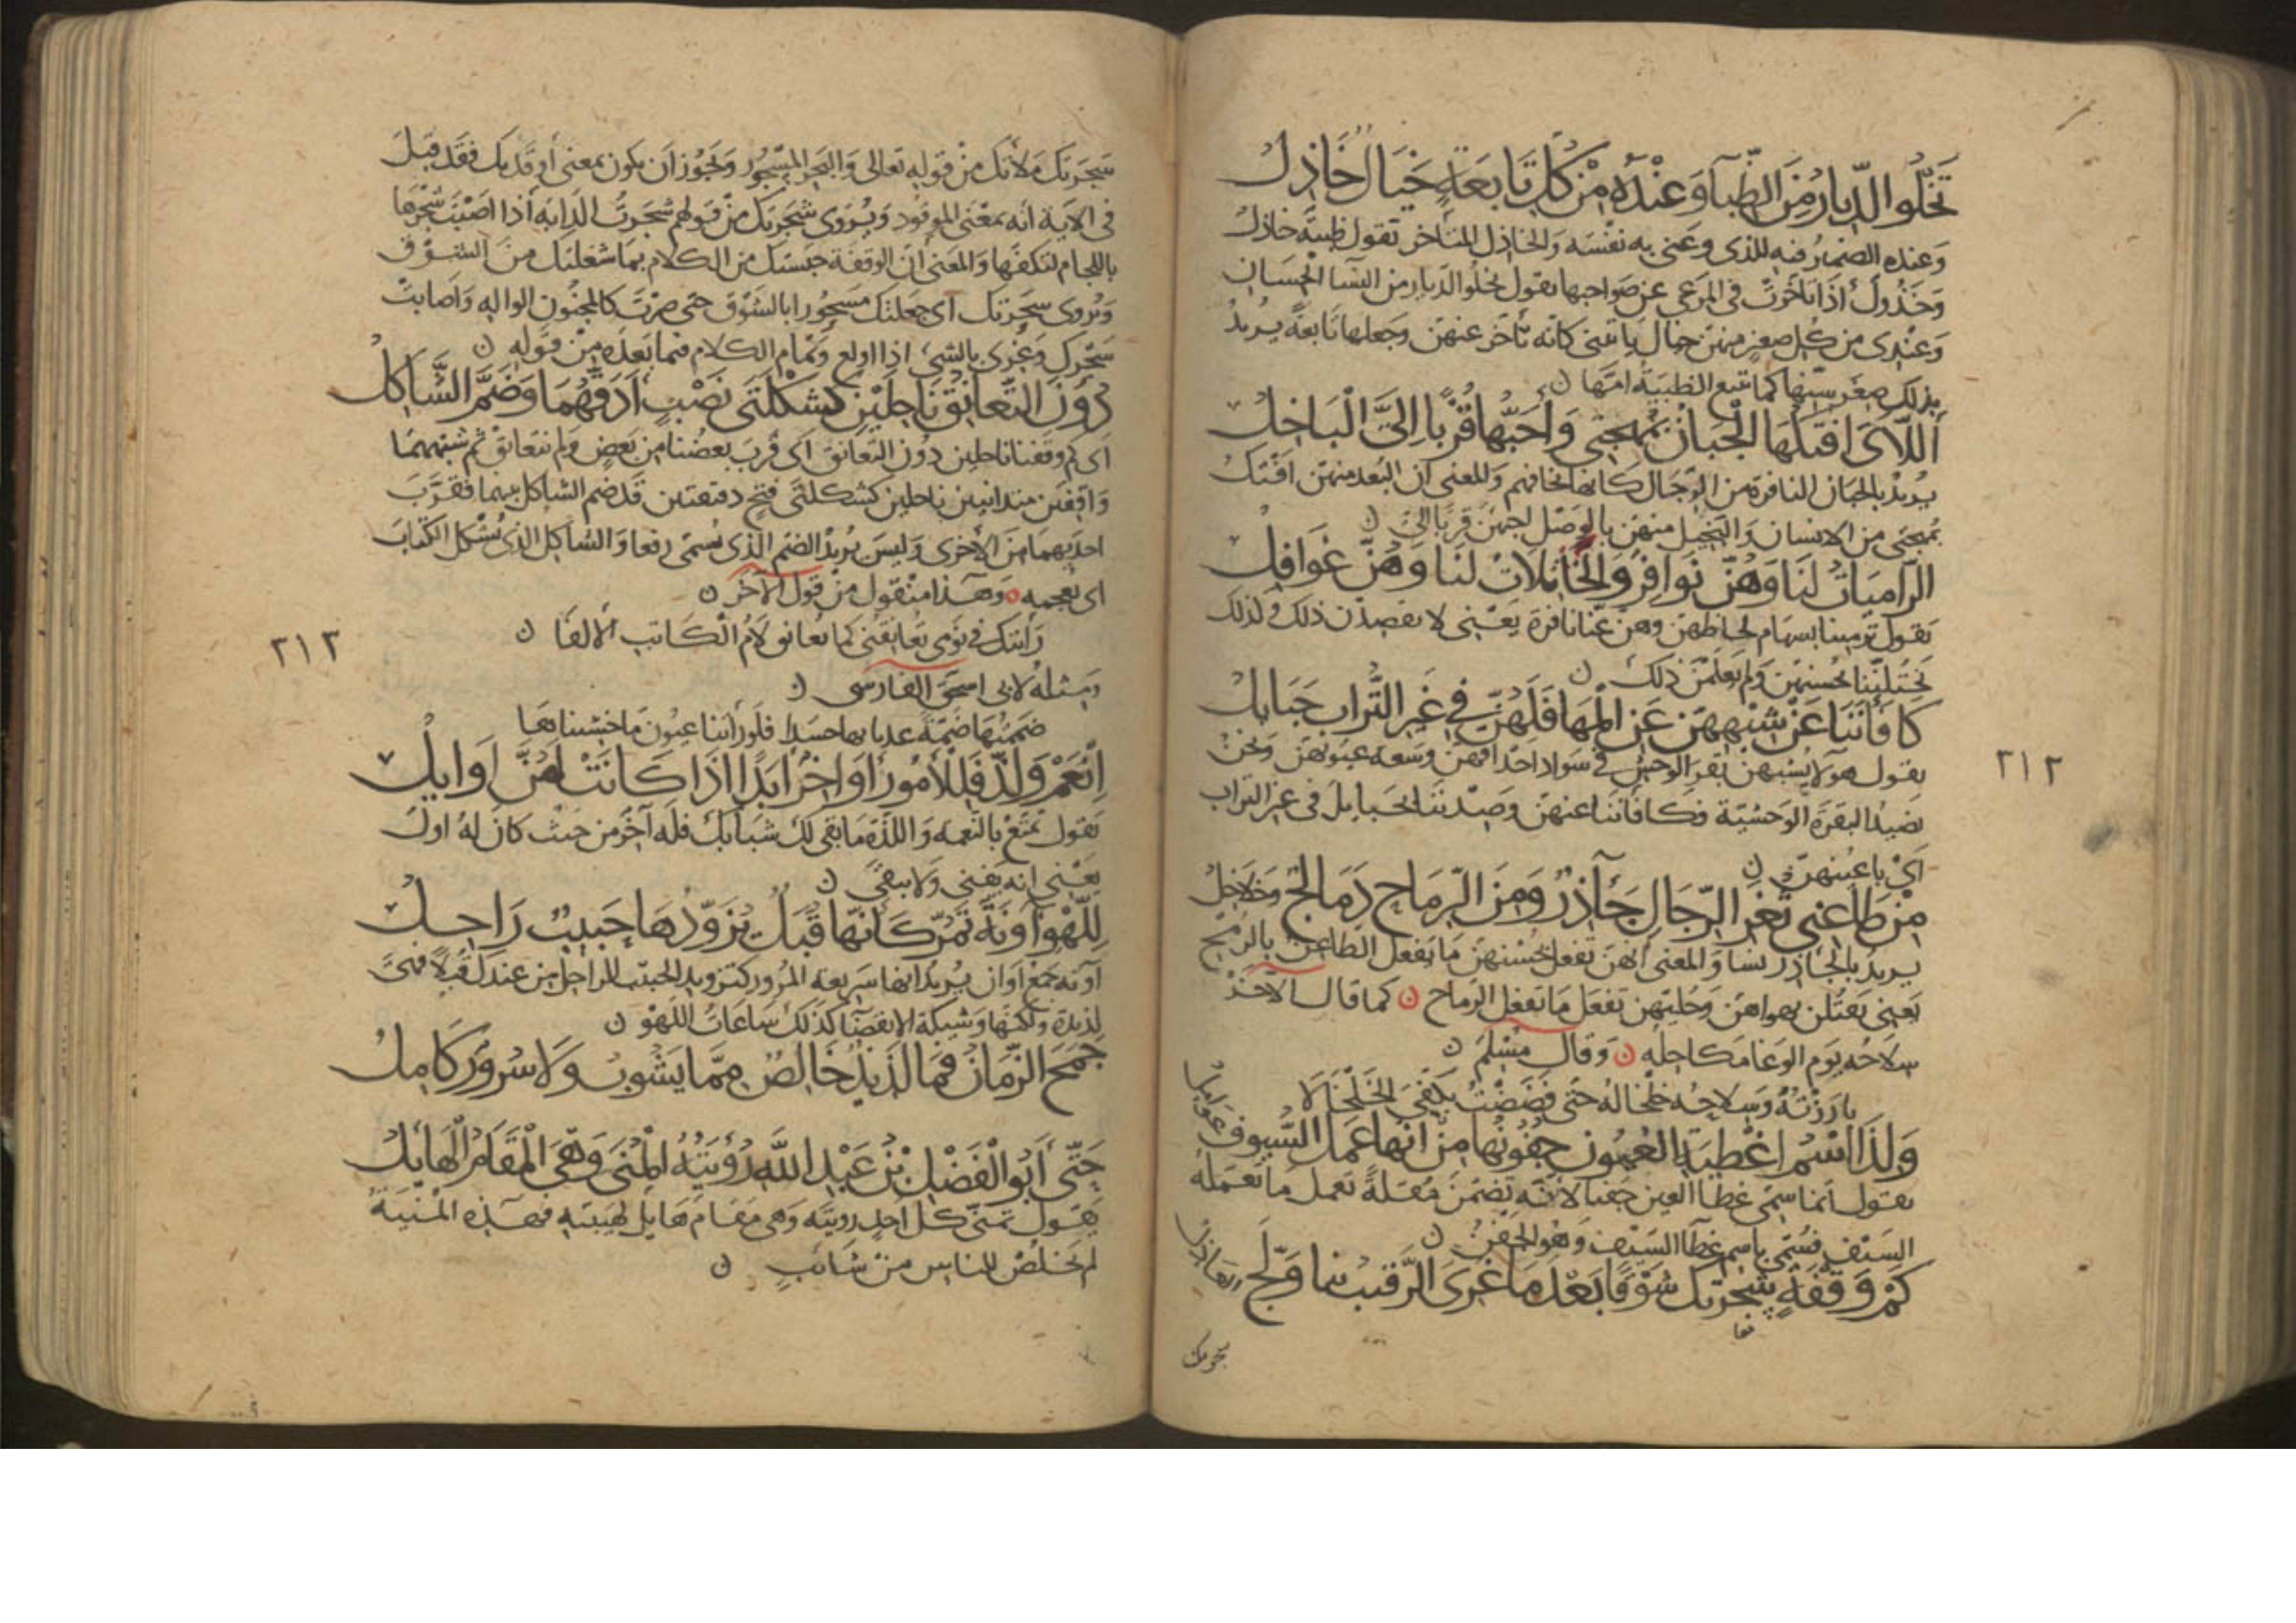 تَخْلُو الدِّيَارُ مِنَ الظِّبَاءِ وَعِنْدَهُ مِنْ كُلِّ تَابِعَةٍ خَيَالٌ خَاذِلُ
وعنده الضمير فيه للذى وعنى به نفسه والخاذل المتاخر تقول ظبية خاذل
وخذول اذا تاخرت فى المرعى عن صواحبها يقول تخلو الديار من النسا الحسان
وعندى من كل صغيرة منهن خيال ياتينى كانه تأخر عنهن وجعلها تابعة يريد
بذلك صغر سنها كما تتبع الظبية امها ن
أَللَّاىَ افتكها الْجَبَانُ بِمُهْجَتى وَأَحَبُّهَا قُرْبًا اِلىَّ الْبَاخِلُ
يريد بالجبان النافرة من الرجال كانها تخافهم والمعنى ان البعد منهن افتك
بمهجتى من الانسان والبخيل منهن بالوصل احبهن قربا الىّ ن
الرَّامِيَاتُ لَنَا وَهُنَّ نَوَافِرُ وَالْخَاتِلَاتُ لَنَا وَهُنَّ غَوَافِلُ
يقول ترميننا بسهام لحاظهن وهن عنا نافرة يعنى لا يقصدن ذلك وكذلك
يختلننا بحسنهن ولم يعلمن ذلك ن
كَافَأْنَنَا عَنْ شِبْهِهِنَّ عَنِ الْمَهَا فَلَهُنَّ فِى غَيْرِ التُّرَابِ حَبَايِلُ
يقول هولا يشبهن بقر الوحش فى سواد احداقهن وسعة عيونهن ونحن
نصيد البقرة الوحشية فكافاننا عنهن وصدننا بحبايل فى غير التراب
اى باعينهن ن
مِنْ طَاعِنِى ثُغَرِ الرِّجَالِ جَآذِرٌ وَمِنَ الرِّمَاحِ دَمَالِجٌ وَخَلَاخِلُ
يريد بالجاذر نسا والمعنى انهن تفعل بحسنهن ما يفعل الطاعن بالرمح
يعنى يقتلن بهواهن وحليهن تفعل ما تفعل الرماح ن كما قال الآخر
سلاحه يوم الوغا مكاحله ن وقال مسلم ن
بارزته وسلاحه خلخاله حتى فضضت بكفى الخلخالا
وَلِذَا اسْمُ اغْطِيَةِ الْعُيُونِ جُفُونُهَا مِنْ اَنَّهَا عَمَلَ السُّيُوفِ عَوَامِلُ
يقول انما سمى غطا العين جفنا لانه تضمن مقلة تعمل ما تعمله
السيف فسمى باسم غطا السيف وهو الجفن ن
كَمْ وَقْفَةٍ سَجَرَتْكَ شَوْقًا بَعْدَ مَا غَرِىَ الرَّقِيبُ بِنَا وَلَجَّ العاذل
سجرتك
٢١٢
سجرتك ملأتك من قوله تعالى والبحر المسجور ويجوز ان يكون بمعنى أوقدتك فقد قيل
فى الآية انه بمعنى الموقود ويروى شجرتك من قولهم شجرت الدابة اذا اصبت شجرها
باللجام لتكفها والمعنى ان الوقفة حبستك من الكلام بما شغلتك من الشوق
ويروى سحرتك اى جعلتك مسحورا بالشوق حتى صرت كالمجنون الواله واصابت
سحرك وغرى بالشىء اذا اولع وتمام الكلام فيما بعده من قوله ن
دُونَ التَّعَانُقِ نَاحِلَيْنِ كَشَكْلَتَى نَصْبٍ أَدَقَّهُمَا وَضَمَّ الشَّاكِلُ
اى كم وقفنا ناحلين دون التعانق اى قرب بعضنا من بعض ولم نتعانق ثم شبههما
واقفين متدانيين ناحلين كشكلتى فتح دقيقتين قد ضم الشاكل بينهما فقرب
احديهما من الاخرى وليس يريد الضم الذى يسمى رفعا والشاكل الذى يشكل الكتاب
اى يعجمه ن وهذا منقول من قول الآخر ن
رأيتك فى نومى تعانقنى كما تعانق لام الكاتب الالفا ن
٢١٣
ومثله لابى اسحق الفارسى ن
ضممتها ضمة عدنا بها جسدا فلو رأتنا عيون ما خشيناها
اِنْعَمْ وَلَذَّ فَلِلْأُمُورِ أَوَاخِرٌ أَبَدًا إِذَا كَانَتْ لَهُنَّ أَوَايِلُ
يقول تمتع بالنعمة واللذة ما بقى لك شبابك فله آخر من حيث كان له اول
يعنى انه يفنى ولا يبقى ن
لِلَّهْوِ آوِنَةٌ تَمُرُّ كَأَنَّهَا قُبَلٌ يُزَوَّدُهَا حَبِيبٌ رَاحِلُ
آونة جمع اوان يريد انها سريعة المرور كتزويد الحبيب للراحل من عندك قبلا فهى
لذيذة ولكنها وشيكة الانقضا كذلك ساعات اللهو ن
جَمَحَ الزَّمَانُ فَمَا لَذِيذٌ خَالِصٌ مِمَّا يَشُوبُ وَلَا سُرُورٌ كَامِلُ
حَتَّى أَبُو الْفَضْلِ بْنُ عَبْدِ اللَّهِ رُؤْيَتُهُ الْمُنَى وَهْىَ الْمَقَامُ الْهَايِلُ
يقول تمنى كل احد رويته وهى مقام هايل لهيبته فهذه المنية
لم تخلص للناس من شائب ن